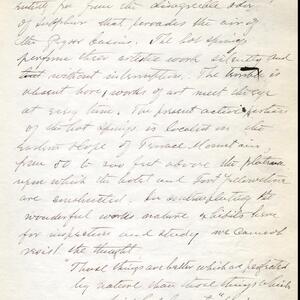 entirely free from the disagreeable odor
of sulphur that pervades the air of
the Geyser basins. The hot springs
perform their artistic work silently and
without interruption. The
absent here; works of art meet the eye
at every turn. The present active portions
of the hot springs is located on the
Eastern slope of Terrace Mountain,
from 50 to 200 feet above the plateau
upon which the hotel and Fort Yellowstone
are constructed. In contemplating the
wonderful works nature exhibits here
for inspection and study we cannot
resist the thought
"Those things are better which are perfected
by nature than those things which